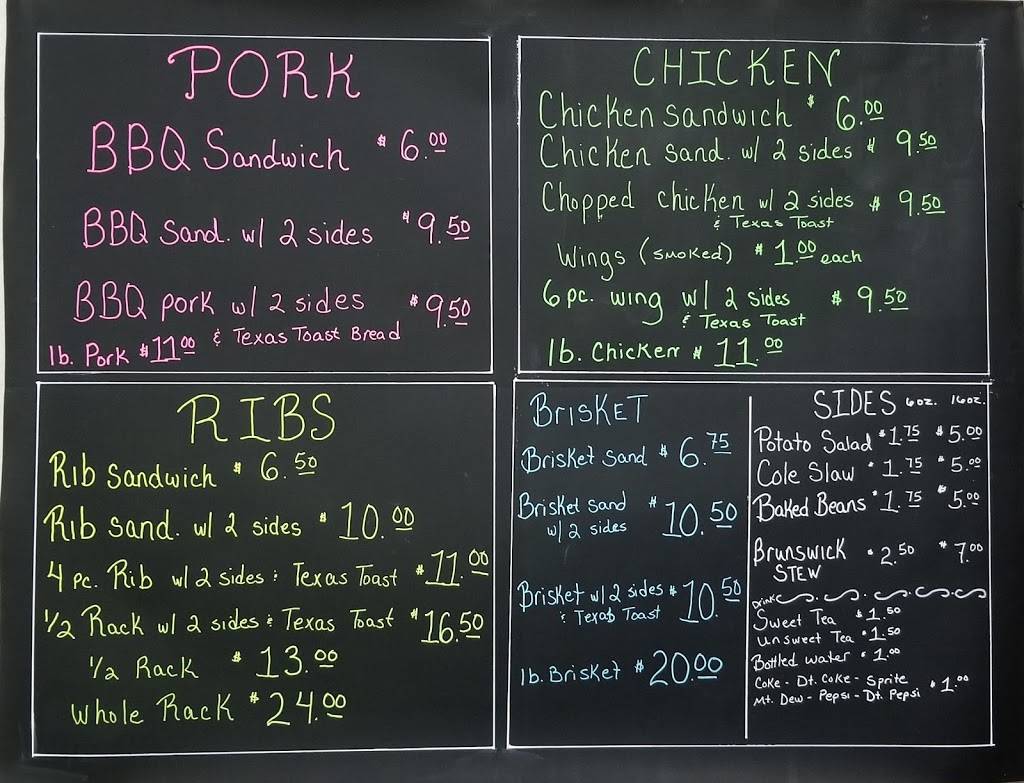 PORK
BBQ Sandwich $6.00
BBQ Sand. w/ 2 sides $9.50
BBQ pork w/ 2 sides $9.50
& Texas Toast Bread
1b. Pork $11.00
CHICKEN
Chicken Sandwich $6.00
Chicken Sand. w/ 2 sides $9.50
Chopped chicken w/ 2 sides $9.50
& Texas Toast
Wings (smoked) $1.00 each
6 pc. wing w/ 2 sides $9.50
& Texas Toast
1b. Chicken $11.00
RIBS
Rib Sandwich $6.50
Rib Sand. w/ 2 sides $10.00
4 pc. Rib w/ 2 sides & Texas Toast $11.00
1/2 Rack w/ 2 sides & Texas Toast $16.50
1/2 Rack $13.00
Whole Rack $24.00
BRISKET
Brisket Sand $6.75
Brisket Sand $10.50
w/ 2 sides
Brisket w/ 2 sides $10.50
& Texas Toast
1b. Brisket $20.00
SIDES 6oz. 16oz.
Potato Salad $1.75 $5.00
Cole Slaw $1.75 $5.00
Baked Beans $1.75 $5.00
Brunswick $2.50 $7.00
STEW
Drink
Sweet Tea $1.50
Unsweet Tea $1.50
Bottled water $1.00
Coke - Dt. Coke - Sprite
Mt. Dew - Pepsi - Dt. Pepsi $1.00